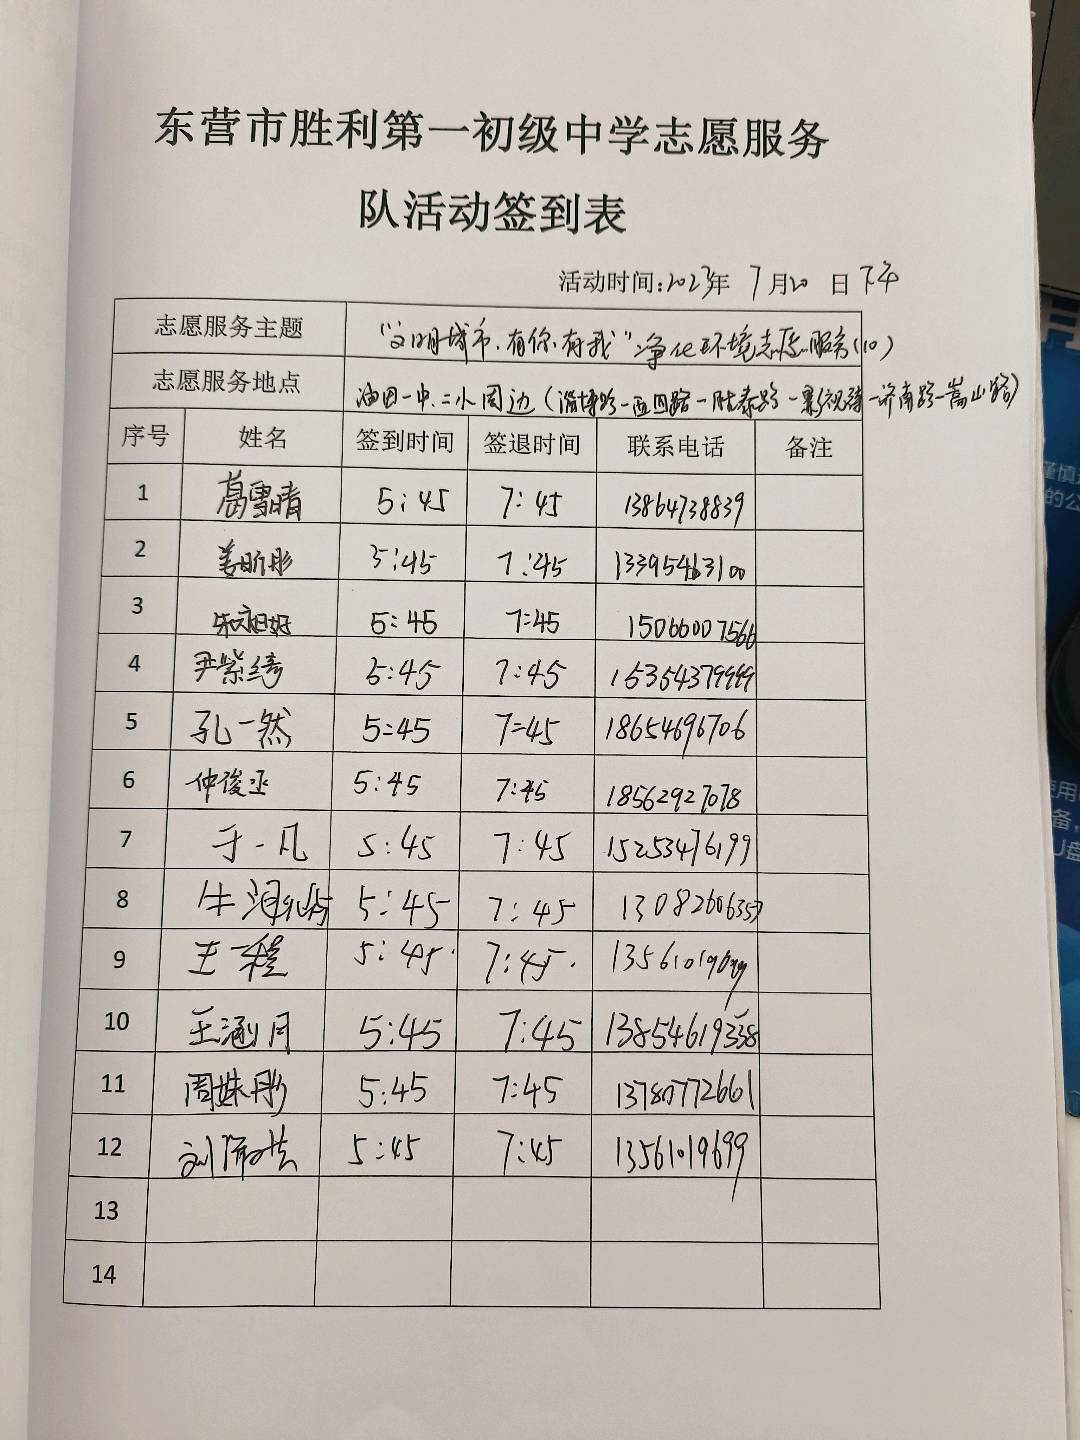 东营市胜利第一初级中学志愿服务
队活动签到表
活动时间:2023年 7月20 日 下午
志愿服务主题 “文明城市、有你有我”净化环境志愿服务(10)
志愿服务地点 油田一中、二小周边(淄博路一西四路一胜泰路一 一济南路一嵩山路)
序号 姓名 签到时间 签退时间 联系电话 备注
1 葛雪晴 5:45 7:45 13864738839
2 姜昕彤 5:45 7:45 13395463100
3 5:45 7:45 15066007566
4 尹紫绮 5:45 7:45 15354379999
5 孔一然 5:45 7:45 18654696706
6 仲俊丞 5:45 7:45 18562927078
7 于一凡 5:45 7:45 15253476199
8 牛 5:45 7:45 13082606357
9 王一程 5:45 7:45
10 王涵月 5:45 7:45 13854619338
11 周姝彤 5:45 7:45 13780772661
12 刘 5:45 7:45 13561019699
13
14